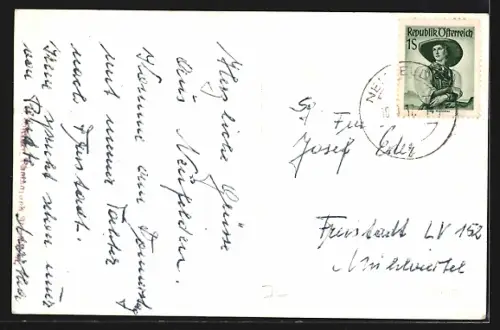 Herzliche Grüsse
aus Neufelden.
Komme am Donnerstag
mit meiner Tochter
nach Freistadt.
Inge spricht schon nur
von Fahrt. Martha
Republik Österreich
1S
NEUFELDEN
Josef Eder
Freistadt LV 152
Mühlviertel